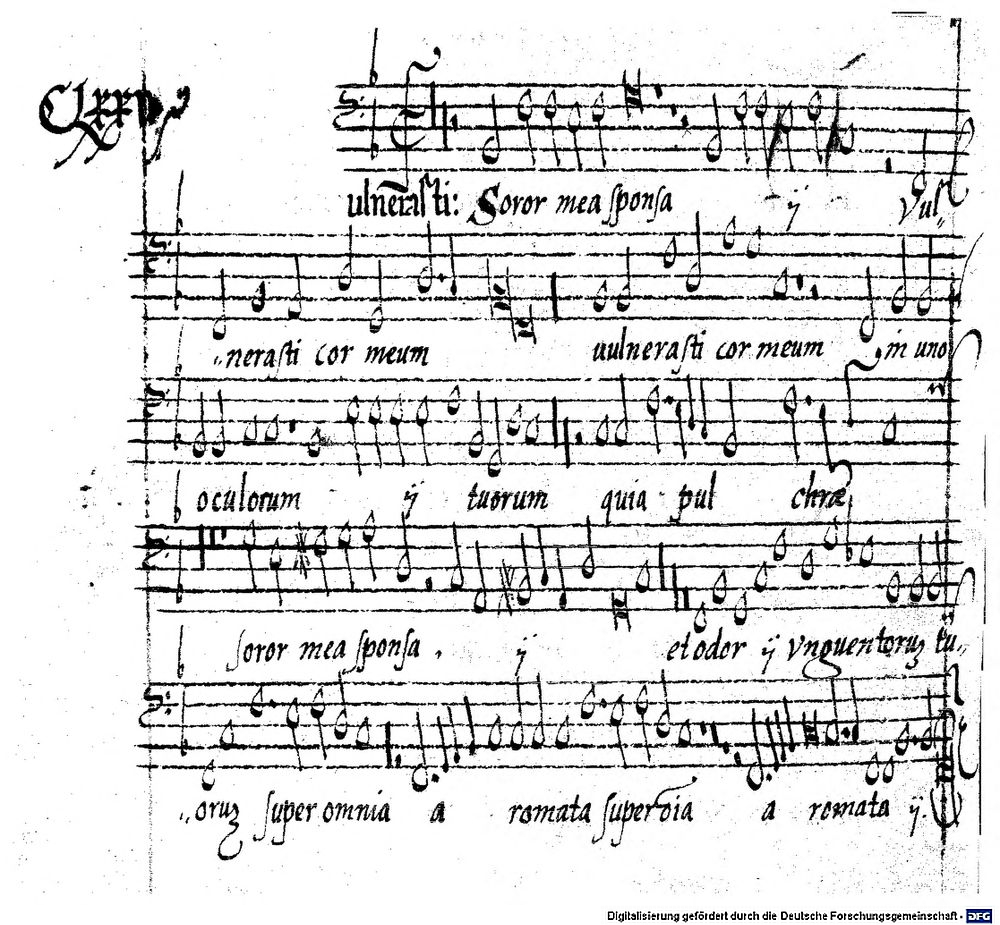 ulnerasti: Soror mea sponsa ij Vul=
=nerasti cor meum uulnerasti cor meum in uno
oculorum ij tuorum quia pul chræ
soror mea sponsa, ij et odor ij Vnguentoruʒ tu=
=oruʒ super omnia a romata super oīa a romata ij.
Digitalisierung gefördert durch die Deutsche Forschungsgemeinschaft - DFG